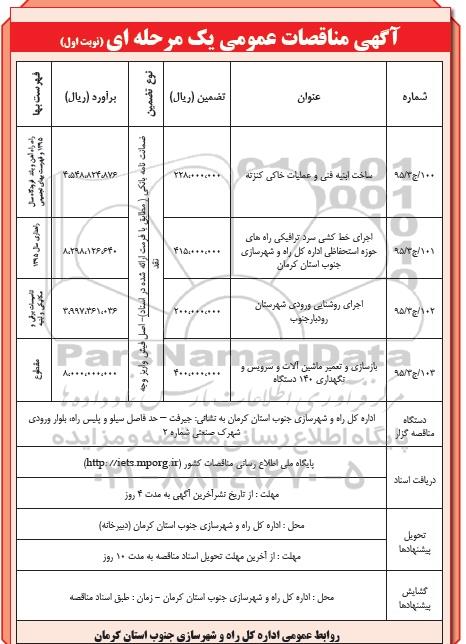 آگهی مناقصات عمومی یک مرحله ای (نوبت اول)
شماره
عنوان
تضمین (ریال)
نوع تضمین
برآورد (ریال)
فهرست بها
۹۵/۳ج/۱۰۰
ساخت ابنیه فنی و عملیات خاکی کنزته
۲۲۸،۰۰۰،۰۰۰
۴،۵۴۸،۸۲۴،۸۷۶
راه، راه آهن و باند فرودگاه سال ۱۳۹۵ و فهرست بهای تجمیعی
۹۵/۳ج/۱۰۱
اجرای خط کشی سرد ترافیکی راه های
حوزه استحفاظی اداره کل راه و شهرسازی
جنوب استان کرمان
۴۱۵،۰۰۰،۰۰۰
۸،۲۹۸،۱۲۶،۶۴۰
راهداری سال ۱۳۹۵
۹۵/۳ج/۱۰۲
اجرای روشنایی ورودی شهرستان
رودبارجنوب
۲۰۰،۰۰۰،۰۰۰
۳،۹۹۷،۳۶۱،۰۳۶
تاسیسات برقی و مکانیکی و ابنیه
۹۵/۳ج/۱۰۳
بازسازی و تعمیر ماشین آلات و سرویس و
نگهداری ۱۴۰ دستگاه
۴۰۰،۰۰۰،۰۰۰
۸،۰۰۰،۰۰۰،۰۰۰
مقطوع
ضمانت نامه بانکی (مطابق با فرمت ارائه شده در اسناد) – اصل فیش واریز وجه
نقد
دستگاه
مناقصه گزار
اداره کل راه و شهرسازی جنوب استان کرمان به نشانی: جیرفت – حد فاصل سیلو و پلیس راه، بلوار ورودی
شهرک صنعتی شماره ۲
دریافت اسناد
پایگاه ملی اطلاع رسانی مناقصات کشور (http://iets.mporg.ir)
مهلت : از تاریخ نشرآخرین آگهی به مدت ۴ روز
تحویل
پیشنهادها
محل : اداره کل راه و شهرسازی جنوب استان کرمان (دبیرخانه)
مهلت : از آخرین مهلت تحویل اسناد مناقصه به مدت ۱۰ روز
گشایش
پیشنهادها
محل : اداره کل راه و شهرسازی جنوب استان کرمان – زمان : طبق اسناد مناقصه
روابط عمومی اداره کل راه و شهرسازی جنوب استان کرمان
ParsNamadData
پایگاه اطلاع رسانی مناقصه و مزایده
۰۲۱-۸۸۳۴۹۶۷۰-۵